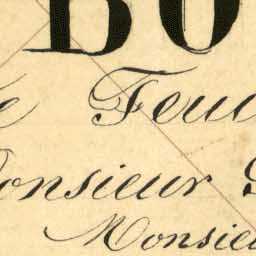 BO
e Feui
onsieur
Monsie